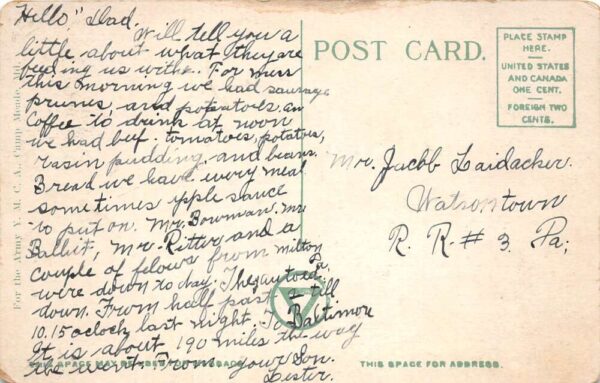 Hello" Dad.
Will tell you a
little about what they are
feeding us withe. For mess
this morning we had sausage
prunes, and potatoes, an
Coffee to drink at noon
we had beef. tomatoes, potatoes,
rasin pudding. and beans.
Bread we have every meal
sometimes apple sauce
to put on. Mr. Bowman. Mr
Balliet, Mr. Ritter and a
couple of felows from Milton
Pa.
were down to day. They autoed
down. From half past 2 till
10.15 oclock last night. To Baltimore
It is about 190 miles the way
we went. From your Son.
Lester.
For the Army Y. M. C. A., Camp Meade, Md.
POST CARD.
PLACE STAMP
HERE.
UNITED STATES
AND CANADA
ONE CENT.
FOREIGN TWO
CENTS.
Mr. Jacob Laidacker.
Watsontown
R. R. # 3 Pa;
THIS SPACE MAY BE USED FOR MESSAGE
THIS SPACE FOR ADDRESS.